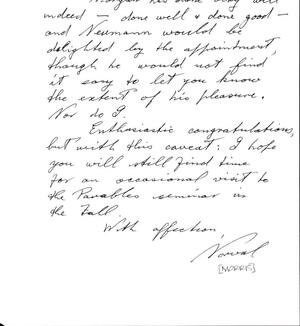 Morgan has done very well
indeed – done well & done good –
and Neumann would be
delighted by the appointment,
though he would not find
it easy to let you know
the extent of his pleasure.
Nor do I.
Enthusiastic congratulations,
but with this caveat: I hope
you will still find time
for an occasional visit to
the Parables seminar in
the Fall.
With affection,
Norval
[MORRIS]